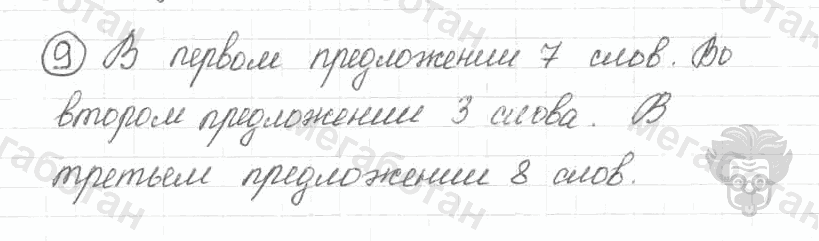 9 В первом предложении 7 слов. Во
втором предложении 3 слова. В
третьем предложении 8 слов.
мегаботан